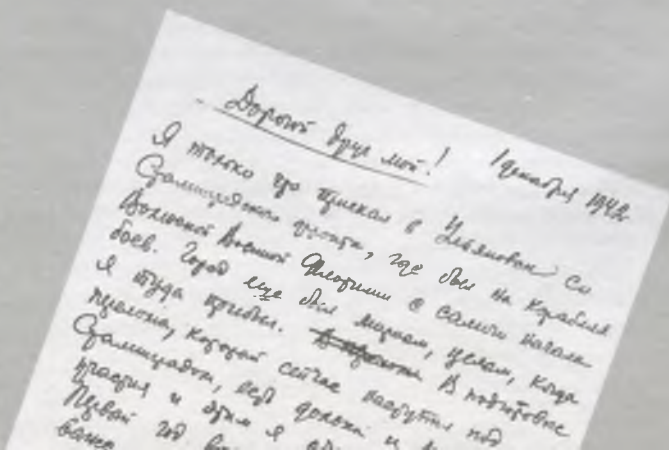 Дорогой друг мой! 1 декабря 1942
Я только что приехал в Ульяновск со
Сталинградского фронта, где был на кораблях
Волжской Военной Флотилии с самого начала
боев. Город еще был мирным, целым, когда
я туда прибыл. В подготовке
прелюдии, которая сейчас под
Сталинградом, есть
участия и этим я
Первой год